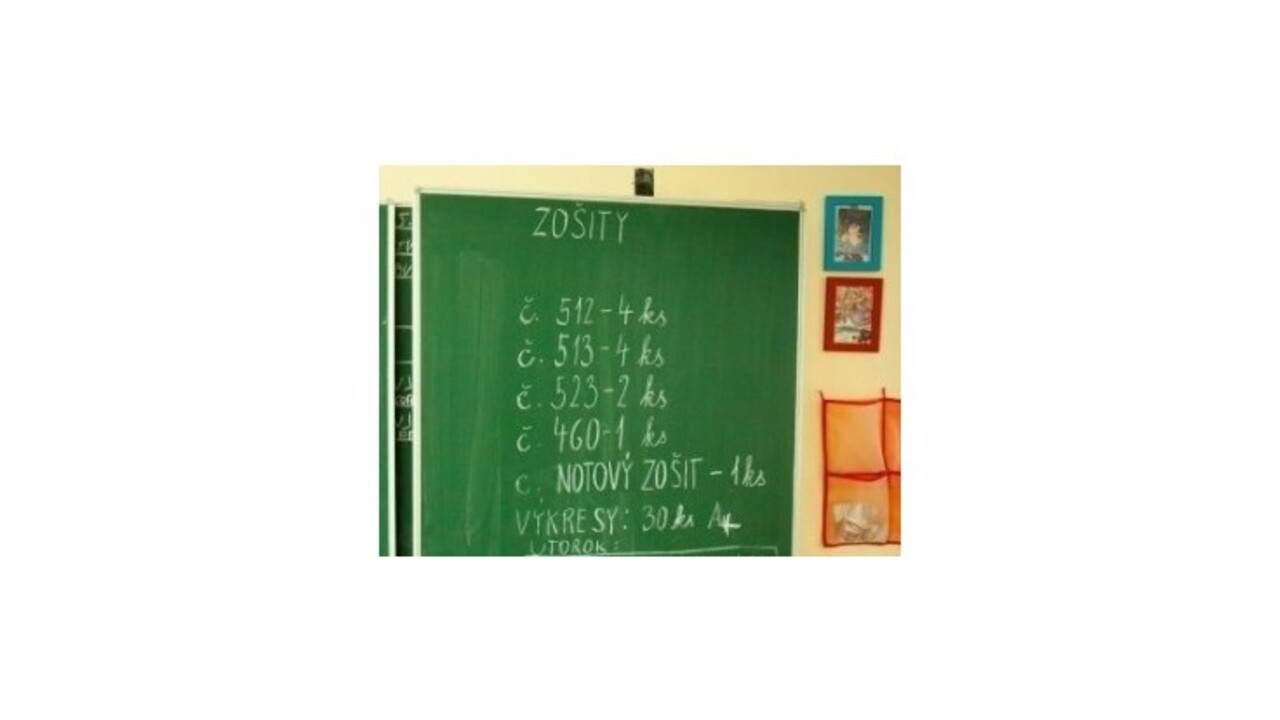 ZOŠITY
č. 512 - 4 ks
č. 513 - 4 ks
č. 523 - 2 ks
č. 460 - 1 ks
č. NOTOVÝ ZOŠIT - 1 ks
VÝKRESY: 30 ks A4
UTOROK: